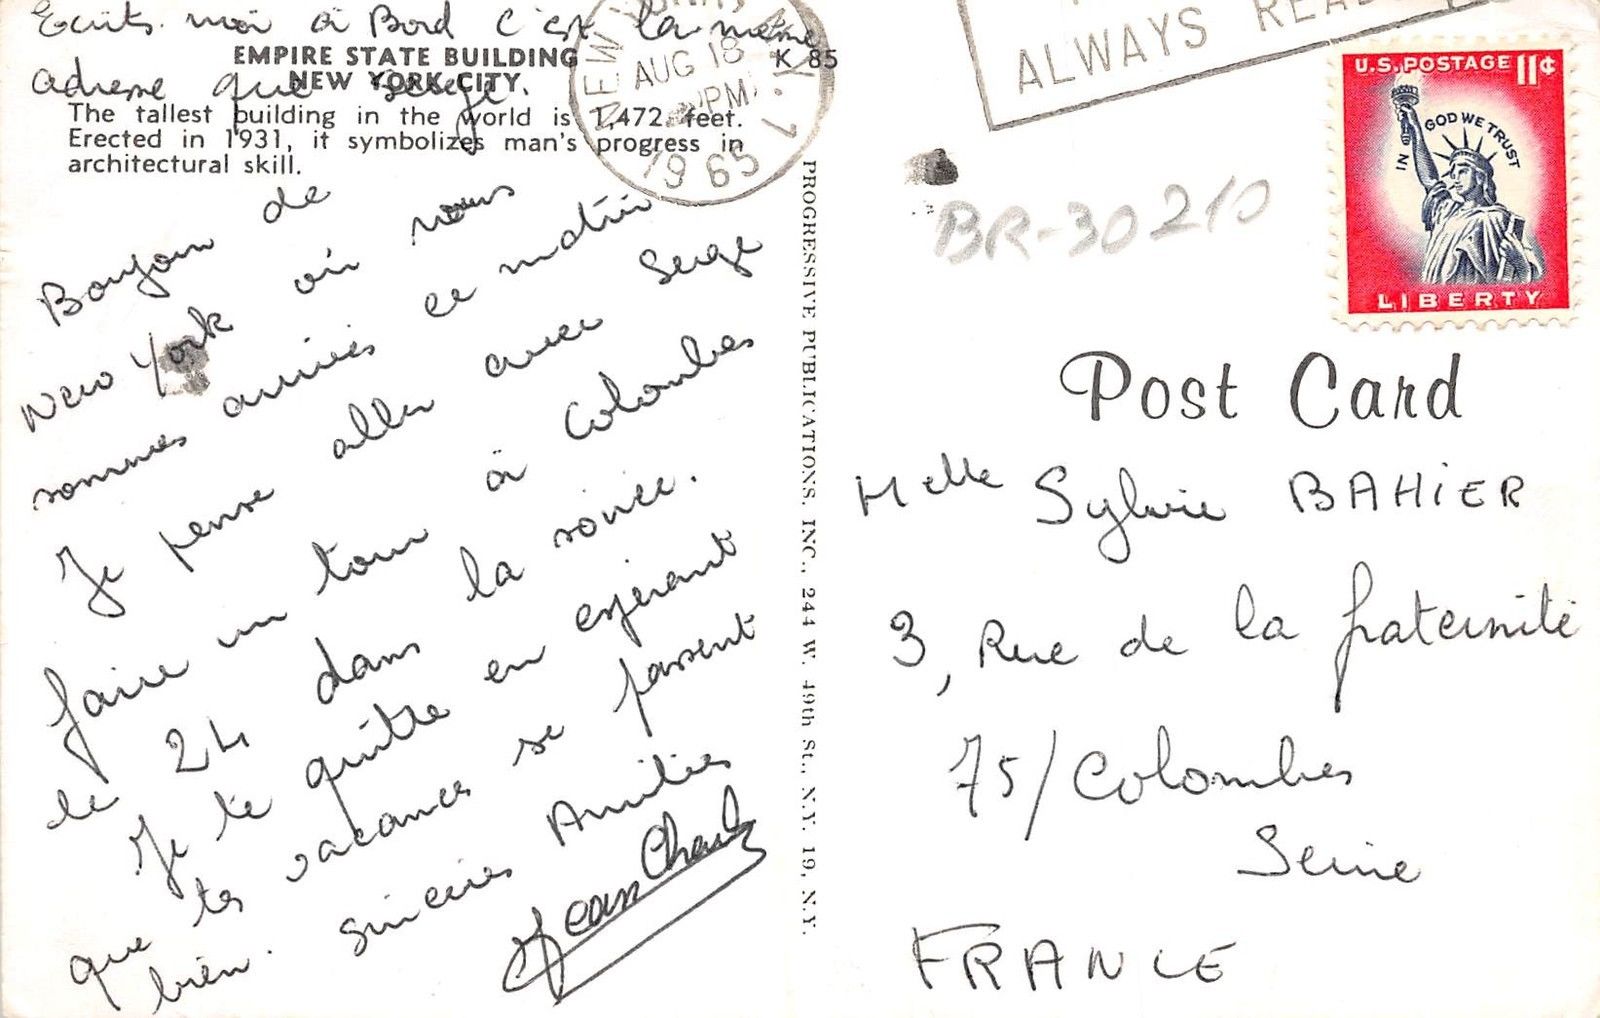 Ecris moi à Bord c'est la même
adresse que Serge.
EMPIRE STATE BUILDING
NEW YORK CITY.
K 85
The tallest building in the world is 1,472 feet.
Erected in 1931, it symbolizes man's progress in
architectural skill.
Bonjour de
New York où nous
sommes arrivés ce matin
Je pense aller avec Serge
faire un tour à Colombes
le 24 dans la soirée.
Je te quitte en espérant
que tes vacances se passent
bien. Sincères Amitiés
Jean Charles
PROGRESSIVE PUBLICATIONS, INC., 244 W. 49th St., N.Y. 19, N.Y.
NEW YORK, N.Y. 1
AUG 18
PM
1965
ALWAYS
U.S. POSTAGE 11¢
IN GOD WE TRUST
LIBERTY
BR-30210
Post Card
Melle Sylvie BAHIER
3, Rue de la fraternité
75/Colombes
Seine
FRANCE